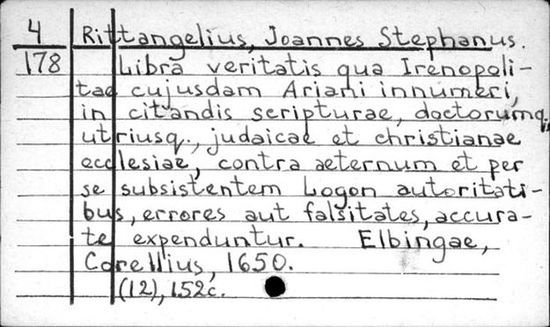 4 Rittangelius, Joannes Stephanus.
178 Libra veritatis qua Irenopoli-
tae cujusdam Ariani innumeri,
in citandis scripturae, doctorumq.
utriusq., judaicae et christianae
ecclesiae, contra aeternum et per
se subsistentem Logon autoritati-
bus, errores aut falsitates, accura-
te expenduntur. Elbingae,
Corellius, 1650.
(12), 152c.